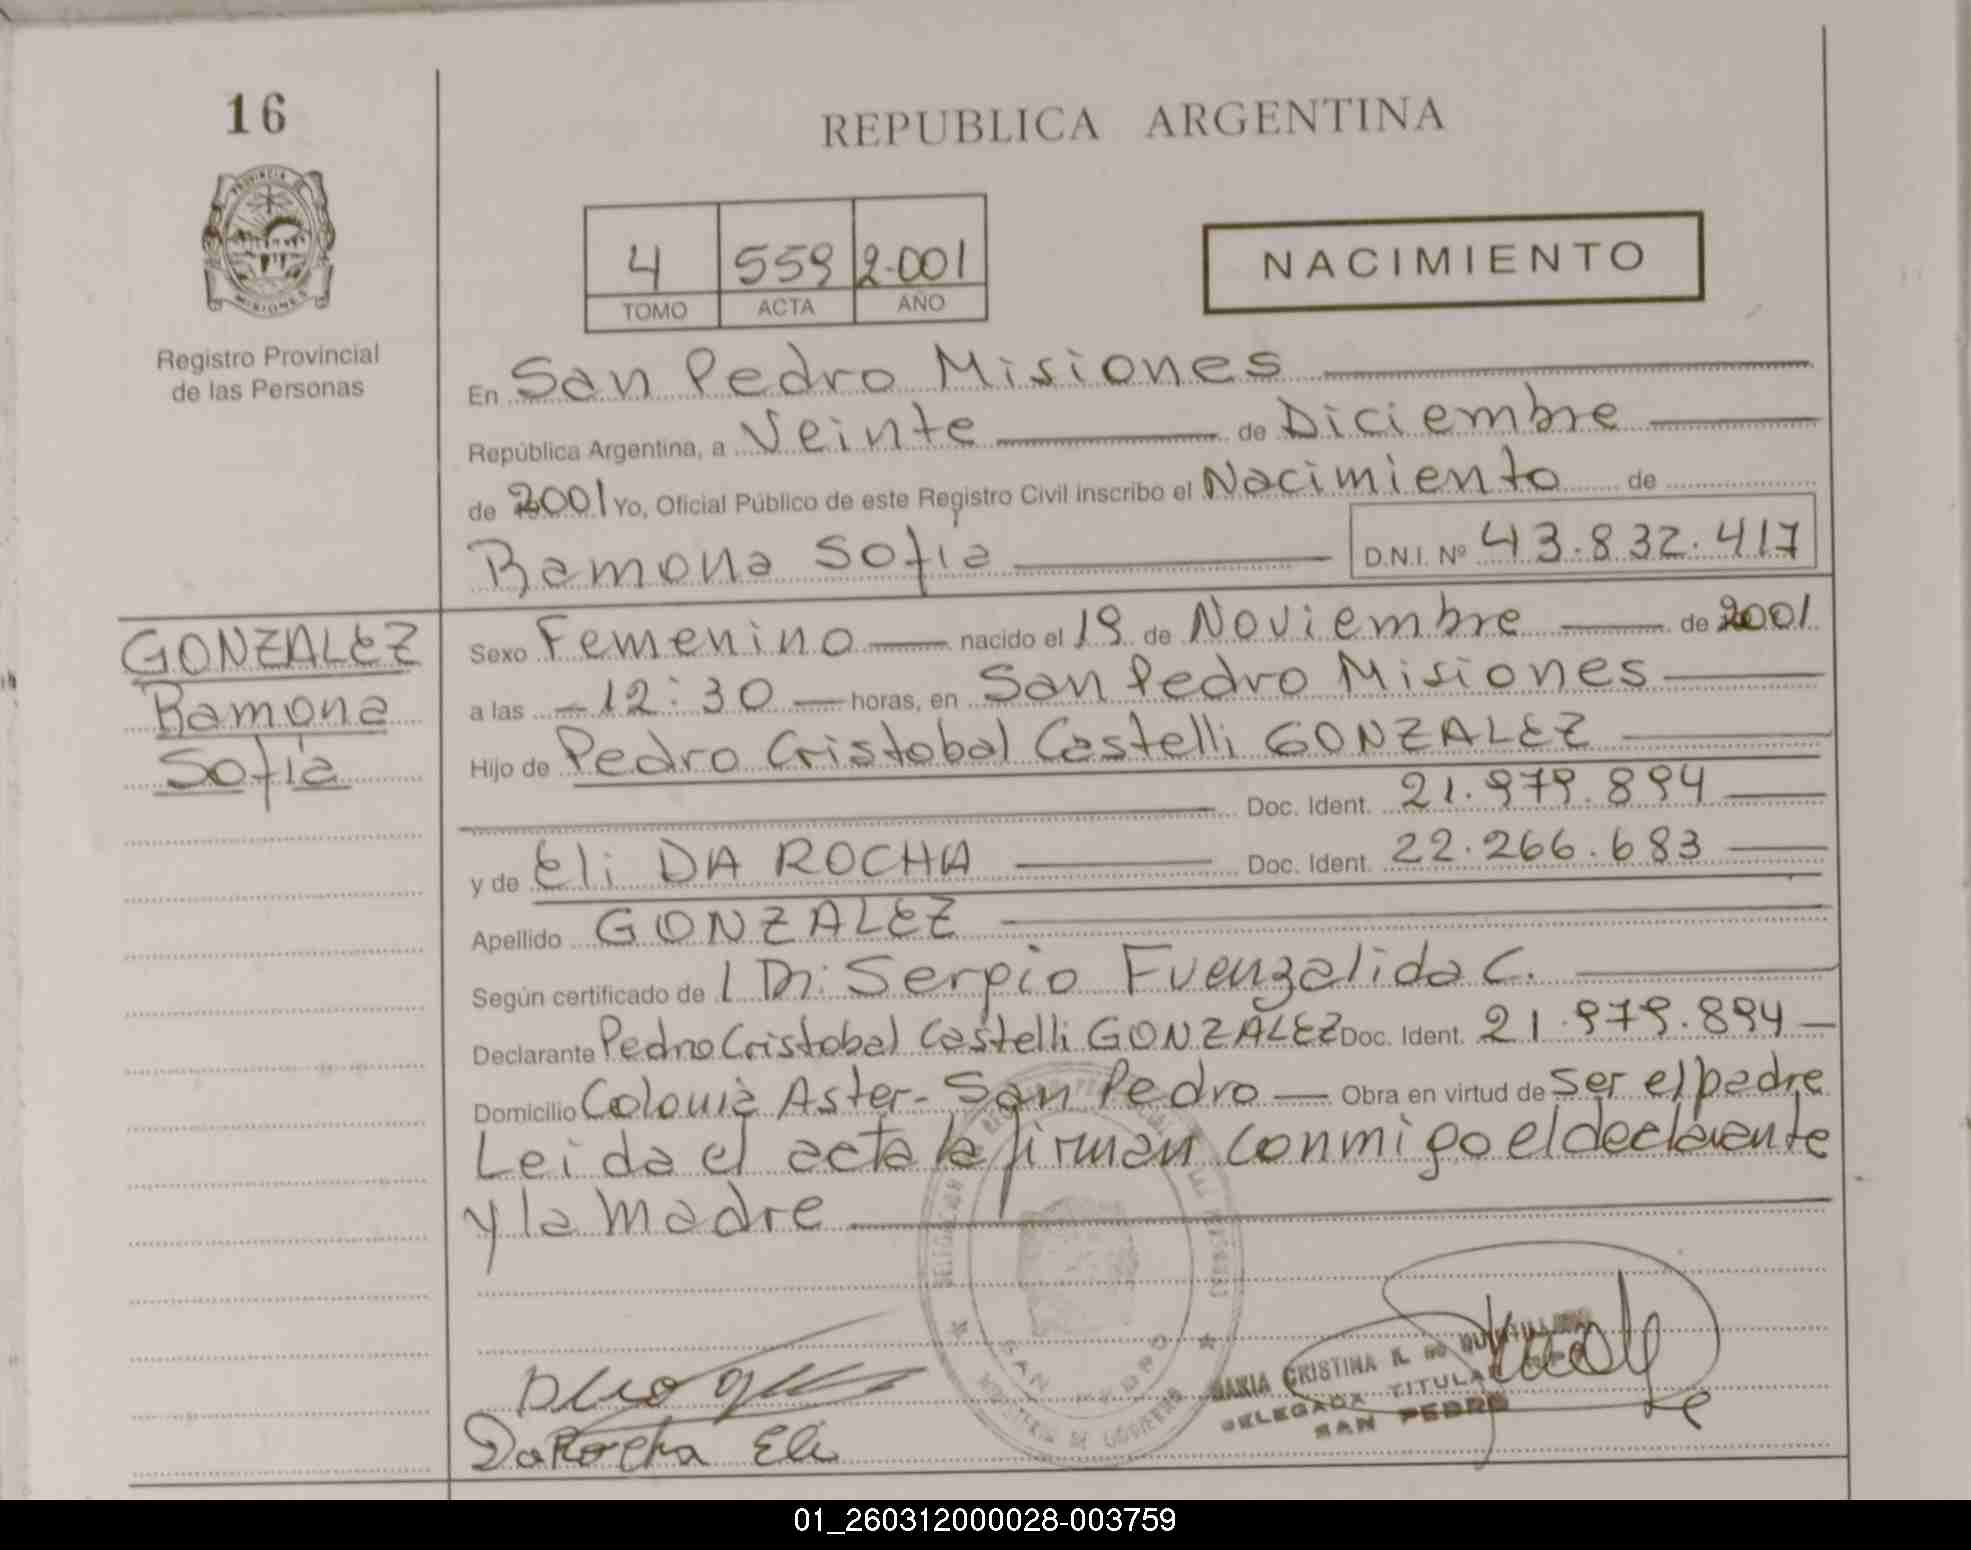 16
REPUBLICA ARGENTINA
PROVINCIA DE
MISIONES
Registro Provincial
de las Personas
4 559 2.001
TOMO ACTA AÑO
NACIMIENTO
En San Pedro Misiones
República Argentina, a Veinte de Diciembre
de 2001 Yo, Oficial Público de este Registro Civil inscribo el Nacimiento de
Ramona Sofía D.N.I. Nº 43.832.417
GONZALEZ
Ramona
Sofía
Sexo Femenino nacido el 19 de Noviembre de 2001
a las 12:30 horas, en San Pedro Misiones
Hijo de Pedro Cristobal Castelli GONZALEZ
Doc. Ident. 21.979.894
y de Eli DA ROCHA Doc. Ident. 22.266.683
Apellido GONZALEZ
Según certificado de Dr: Sergio Fuenzalida C.
Declarante Pedro Cristobal Castelli GONZALEZ Doc. Ident. 21.979.894
Domicilio Colonia Aster - San Pedro Obra en virtud de ser el padre
Leida el acta la firman conmigo el declarante
y la madre
SAN PEDRO
MINISTERIO DE GOBIERNO
Da Rocha Eli
MARIA CRISTINA R. DE
DELEGADA TITULAR
SAN PEDRO
01_260312000028-003759